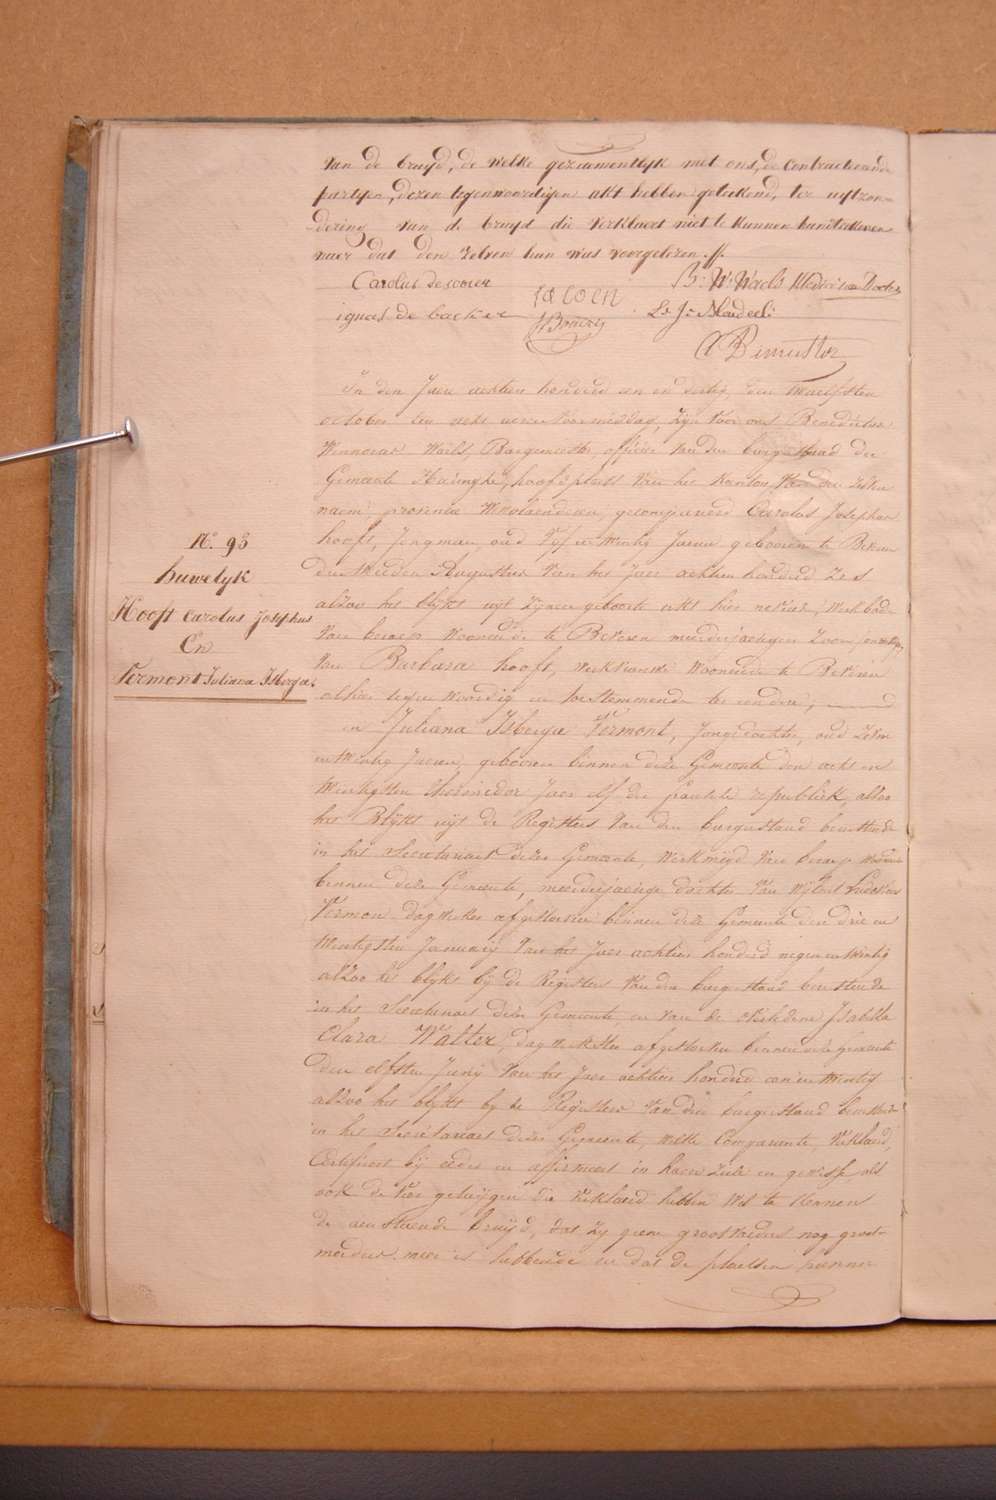 van de bruyd, de welke gezamentlyk met ons, de Contracteerende
partyen, dezen tegenwoordigen akt hebben geteekend, ter uytzon=
dering van de bruyd die verklaert niet te kunnen handteekenen
naer dat den zelven hun was voorgelezen.//.
Carolus de somer
jacoen
B: W: Waels Medicinae Doctor
ignaes de backer
L: J:
In den Jaere achtien honderd een en dertig, den twaelfsten
october ten acht uren voormiddag, zyn voor ons Benedictus
Winnocus Waels, Burgemeester, officier van den burgerstaed der
Gemeente Haringhe, hoofdplaets van het kanton van den zelven
naem, provintie Westvlaenderen, gecompareerd Carolus Josephus
hooft, Jongman, oud vyf en twintig Jaeren geboren te Beveren
den Augustus van het Jaer achtien honderd zes
alzoo het blykt uyt zynen geboorte akt hier nevens, werkbode
van beroep woonende te Beveren meerderjaerigen zoon
van Barbara hooft, werkvrauw woonende te Beveren
alhier tegenwoordig en toestemmende ter eendre;
N.º 93
huwelyk
Hooft Carolus Josephus
En
Vermont Juliana Isberga.
en Juliana Isberga Vermont, Jongedochter, oud zeven
en twintig Jaeren, geboren binnen deze Gemeente den acht en
twintigsten thermidor Jaer elf der fransche republiek, alzoo
het Blykt uyt de Registers van den burgerstaed berustende
in het Secretariaet dezer Gemeente, werkmeyd van beroep woonende
binnen deze Gemeente, meerderjaerige dochter van wylent Ludovicus
Vermon dagwerker afgestorven binnen deze Gemeente den drie en
twintigsten January van het Jaer achtien honderd negen en twintig
alzoo het blykt by de Registers van den burgerstaed berustende
in het Secretariaet dezer Gemeente, en van de overledene Isabella
Clara Walter, dagwerkster afgestorven binnen deze gemeente
den elfsten Juny van het Jaer achtien honderd een en twintig
alzoo het blykt by de Registers van den burgerstaed berustende
in het Secretariaet dezer Gemeente, welke Comparante, verklaerd,
Certifieert by eede en affirmeert in haer ziele en gewisse, als
ook de vier getuygen die verklaerd hebben wel te kennen
de aenstaende bruyd, dat zy geene grootvaders nog groot=
moeders meer is hebbende en dat de plaetsen hunner